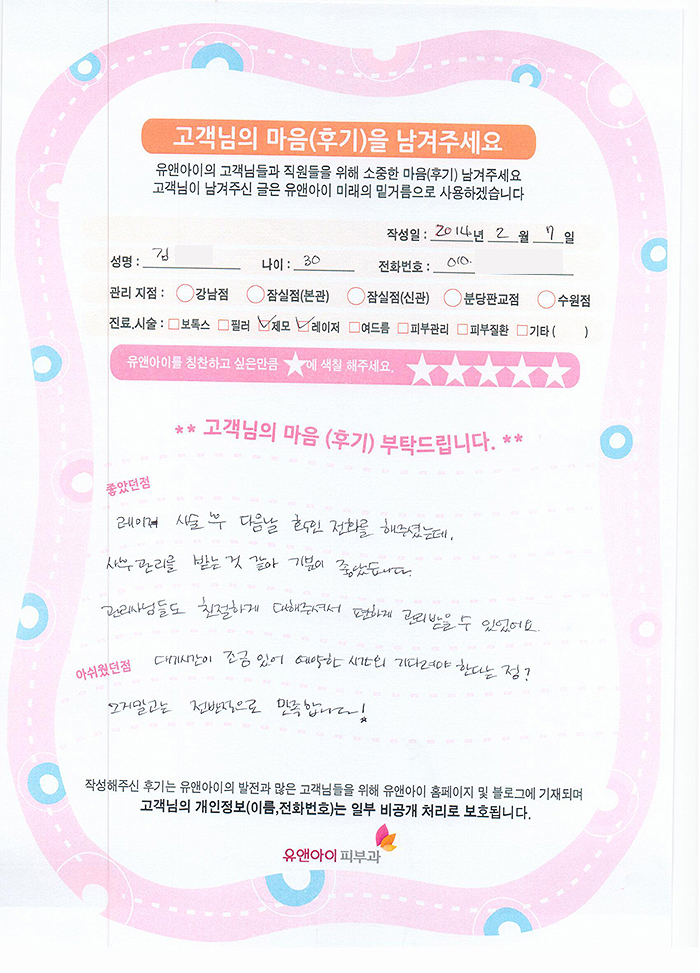 고객님의 마음(후기)을 남겨주세요
유앤아이의 고객님들과 직원들을 위해 소중한 마음(후기) 남겨주세요
고객님이 남겨주신 글은 유앤아이 미래의 밑거름으로 사용하겠습니다
작성일 : 2014년 2 월 7 일
성명 : 김 나이 : 30 전화번호 : 010.
관리 지점 : 강남점 잠실점(본관) 잠실점(신관) 분당판교점 수원점
진료,시술 : 보톡스 필러 제모 레이저 여드름 피부관리 피부질환 기타 ( )
유앤아이를 칭찬하고 싶은만큼 ★에 색칠 해주세요. ★★★★★
** 고객님의 마음 (후기) 부탁드립니다. **
좋았던점
레이저 시술 후 다음날 확인 전화를 해주셨는데,
사후관리를 받는 것 같아 기분이 좋았습니다.
관리사님들도 친절하게 대해주셔서 편하게 관리받을 수 있었어요.
아쉬웠던점 대기시간이 조금 있어 예약한 시간외 기다려야 한다는 점?
그거말고는 전반적으로 만족합니다!
작성해주신 후기는 유앤아이의 발전과 많은 고객님들을 위해 유앤아이 홈페이지 및 블로그에 기재되며
고객님의 개인정보(이름,전화번호)는 일부 비공개 처리로 보호됩니다.
유앤아이 피부과